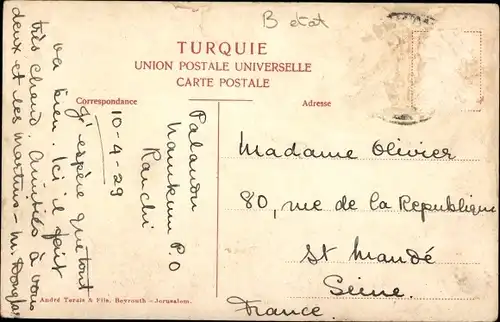 B état
TURQUIE
UNION POSTALE UNIVERSELLE
CARTE POSTALE
Correspondance
Adresse
Palandon
Namkum P.O
Ranchi
10-4-29
J'espère que tout
va bien. Ici il fait
très chaud. Amitiés à vous
deux et les Martins - M. Douglas
Madame Olivier
80, rue de la Republique
St Mandé
Seine.
France.
André Terzis & Fils, Beyrouth - Jerusalem.